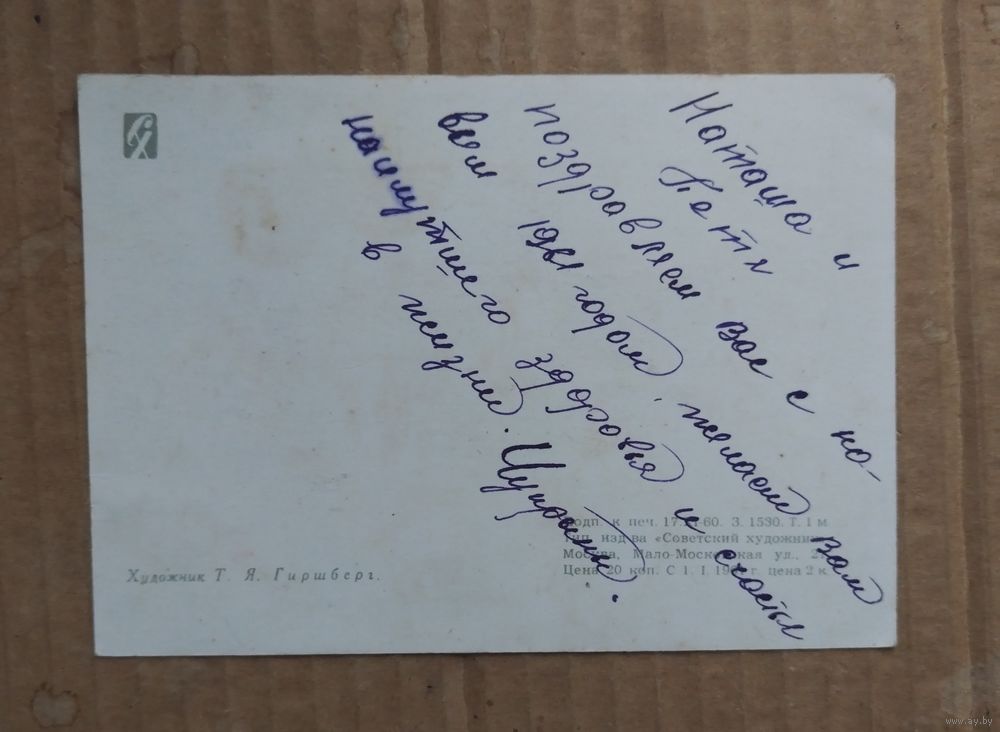 Наташа и
Петя
поздравляем Вас с но-
вым 1961 годом, желаем Вам
наилутшего здоровья и счастья
в жизни.
Художник Т. Я. Гиршберг.
Подп. к печ. 60. З. 1530. Т. 1 м
Тип. изд-ва «Советский художник»
Москва, Мало-Московская ул.,
Цена 20 коп. С 1. I. 1961 г. цена 2 к.
www.ay.by